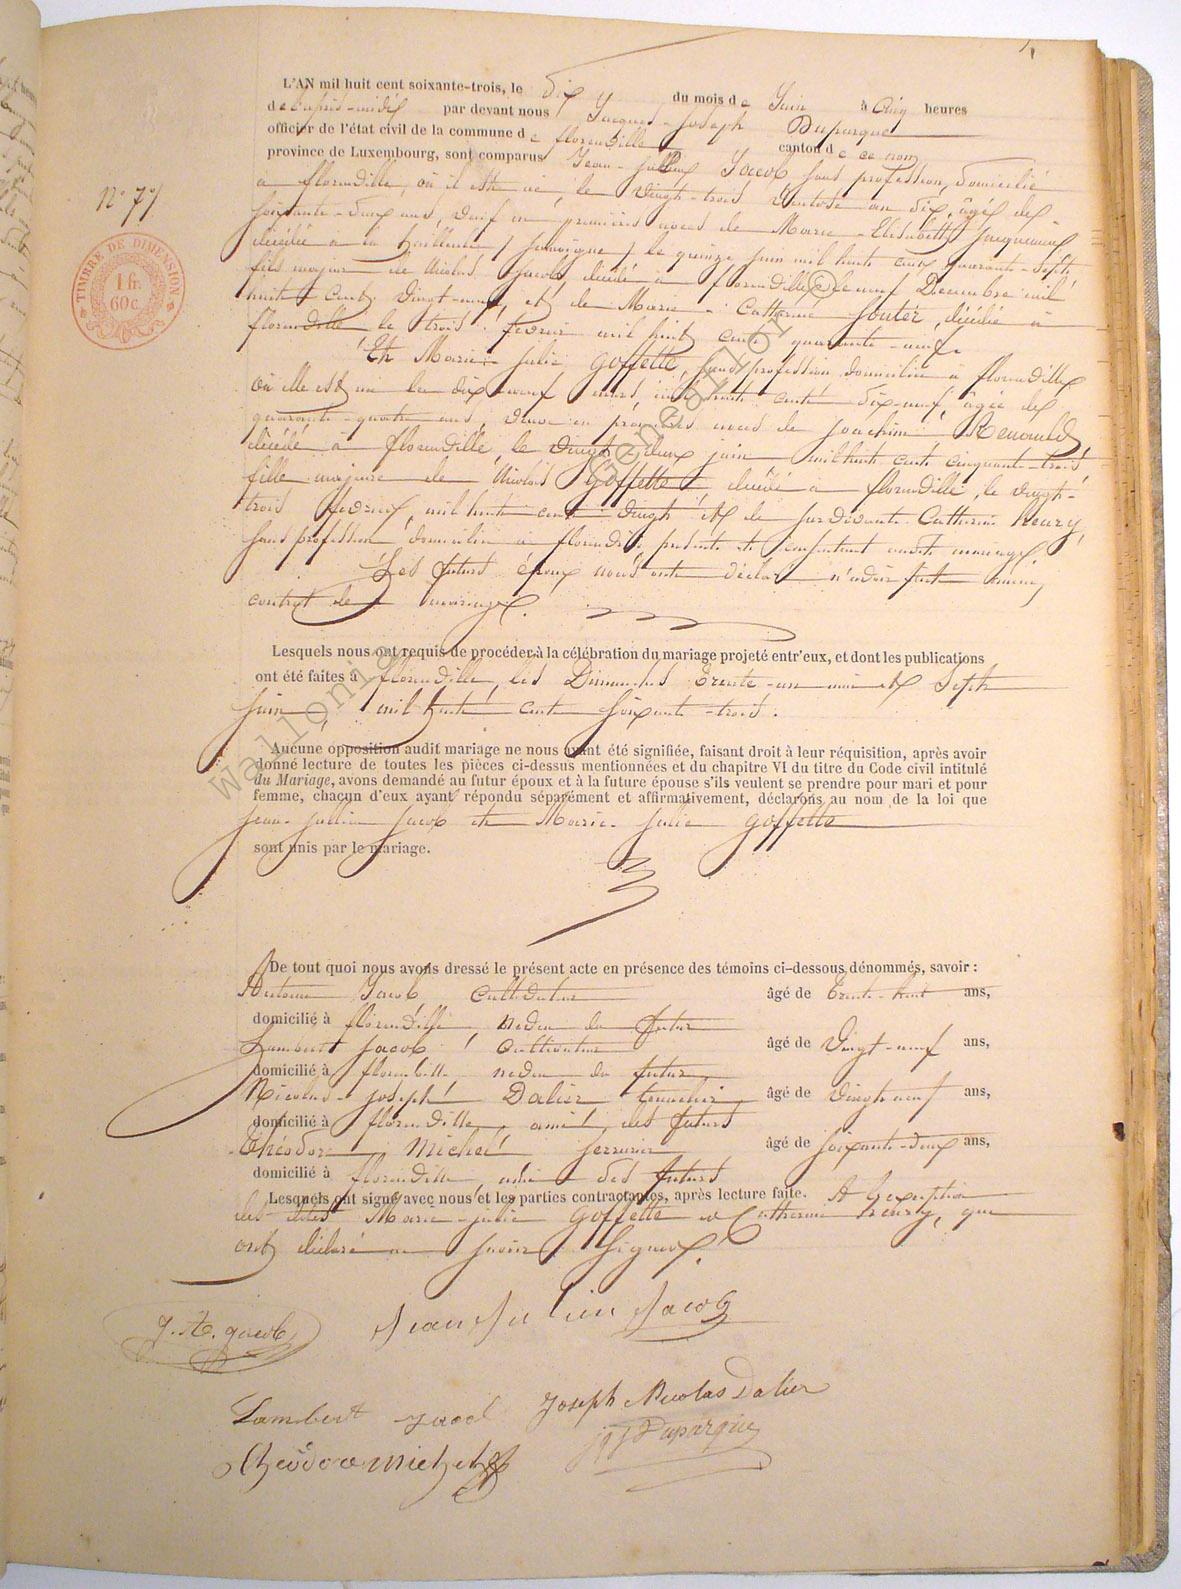 L'AN mil huit cent soixante-trois, le dix du mois de Juin à cinq heures
de l'après-midi par devant nous Jacques-Joseph Duparque
officier de l'état civil de la commune de florenville canton de ce nom
province de Luxembourg, sont comparus Jean-Jullien Jacob sans profession, domicilié
à florenville, où il est né, le vingt-trois Ventose an dix, âgé de
soixante-deux ans, veuf en premières noces de Marie-Elisabeth Jacquemin
N° 7
décédée à la , le quinze Juin mil huit cent quarante-sept,
TIMBRE DE DIMENSION
1 fr.
60c.
fils majeur de Nicolas Jacob, décédé à florenville le neuf Décembre mil
huit cent vingt-neuf, et de Marie-Catherine , décédée à
florenville le trois fevrier mil huit cent quarante-neuf.
Et Marie-Julie Goffette, sans profession domiciliée à florenville
où elle est née le dix neuf mars mil huit cent dix-neuf, âgée de
quarante-quatre ans, veuve en premières noces de Joachim Renauld
décédé à florenville, le vingt deux juin mil huit cent cinquante-trois
fille majeure de Nicolas Goffette décédé à florenville, le vingt-
trois fevrier, mil huit cent vingt et de survivante Catherine heury,
sans profession domiciliée à florenville, présente et consentant audit mariage
Les futurs époux nous ont déclaré n'avoir fait aucun
contrat de mariage.
Lesquels nous ont requis de procéder à la célébration du mariage projeté entr'eux, et dont les publications
ont été faites à florenville, les Dimanches trente-un mai et sept
juin, mil huit cent soixante-trois.
Aucune opposition audit mariage ne nous ayant été signifiée, faisant droit à leur réquisition, après avoir
donné lecture de toutes les pièces ci-dessus mentionnées et du chapitre VI du titre du Code civil intitulé
du Mariage, avons demandé au futur époux et à la future épouse s'ils veulent se prendre pour mari et pour
femme, chacun d'eux ayant répondu séparément et affirmativement, déclarons au nom de la loi que
Jean-Jullien Jacob et Marie-Julie Goffette
sont unis par le mariage.
De tout quoi nous avons dressé le présent acte en présence des témoins ci-dessous dénommés, savoir :
Jacob Cultivateur âgé de trente-huit ans,
domicilié à florenville, neveu du futur
Lambert Jacob, Cultivateur âgé de Vingt-neuf ans,
domicilié à florenville neveu du futur
Nicolas-Joseph Dalier âgé de vingt neuf ans,
domicilié à florenville, ami des futurs
Théodore Michel serrurier âgé de soixante-deux ans,
domicilié à florenville, ami des futurs
Lesquels ont signé avec nous et les parties contractantes, après lecture faite. A l'exception
des dites Marie-Julie Goffette et Catherine heury, qui
ont déclaré ne savoir signer.
Jean Julien Jacob
Lambert Jacob Joseph Nicolas Dalier
Théodore michel JJ Duparque
wallonia © Geneaflor